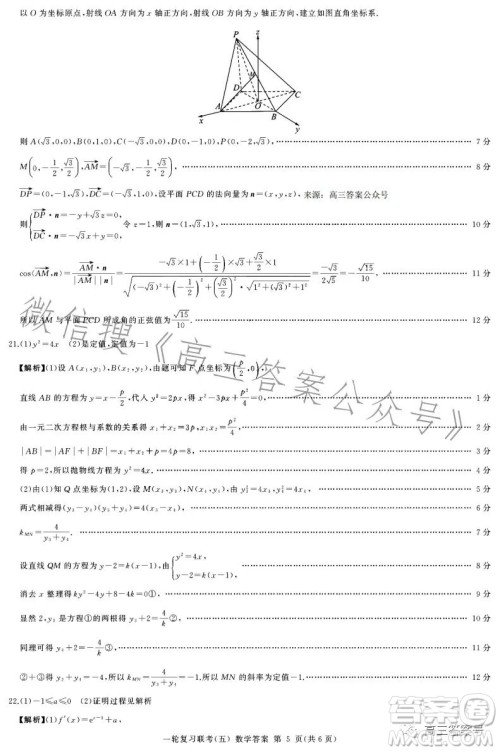 以 O 为坐标原点,射线 OA 方向为 x 轴正方向,射线 OB 方向为 y 轴正方向,建立如图直角坐标系.
P
z
M
D
C
O
A
B
x
y
则 A(√3,0,0),B(0,1,0),D(0,-1,0),P(0,-2,√3), 7分
M(0,-1/2,√3/2),AM=(-√3,-1/2,√3/2), 8分
DP=(0,-1,√3),DC=(-√3,0,0),设平面 PCD 的法向量为 n=(x,y,z), 来源:高三答案公众号
则 DP·n=-y+√3z=0, 令 z=1,则 n= 10分
cos⟨AM,n⟩=AM·n/|AM||n|= 11分
所以 AM 与平面 PCD 所成角的正弦值为 √15/10. 12分
21.(1)y²=4x (2)是定值,定值为-1
【解析】(1)设 A(x₁,y₁),B(x₂,y₂),由题可知 F 点坐标为(p/2,0),
直线 AB 的方程为 y=x-p/2,代入 y²=2px,得 x²-3px+p²/4=0, 1分
由一元二次方程根与系数的关系得 x₁+x₂=3p,x₁x₂=p²/4, 2分
|AB|=|AF|+|BF|=x₁+x₂+p=4p=8, 3分
得 p=2,所以抛物线方程为 y²=4x. 4分
(2)由(1)知 Q 点坐标为(1,2),设 M(x₃,y₃),N(x₄,y₄),由
两式相减得(y₃-y₄)(y₃+y₄)=4(x₃-x₄), 6分
k_MN=4/(y₃+y₄). 7分
设直线 QM 的方程为 y-2=k(x-1),由{y²=4x, y-2=k(x-1),
消去 x 整理得 ky²-4y+8-4k=0①, 9分
显然 2,y₃ 是方程①的两根得 y₃+2=4/k②, 10分
同理可得 11分
②+③得 y₃+y₄=-4,所以 k_MN=-1,所以 MN 的斜率为定值-1. 12分
22.(1)-1≤a≤0 (2)证明过程见解析
【解析】(1)f'(x)=eˣ⁻¹+a,
一轮复习联考(五) 数学答案 第 5 页(共 6 页)
微信搜《高三答案公众号》
高三答案号